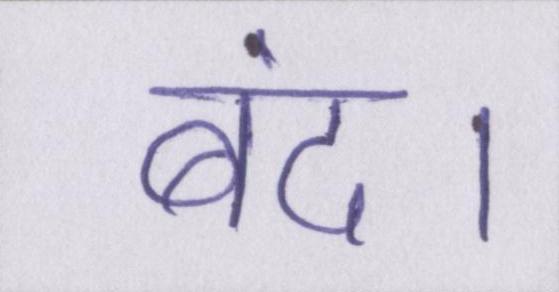 बंद।